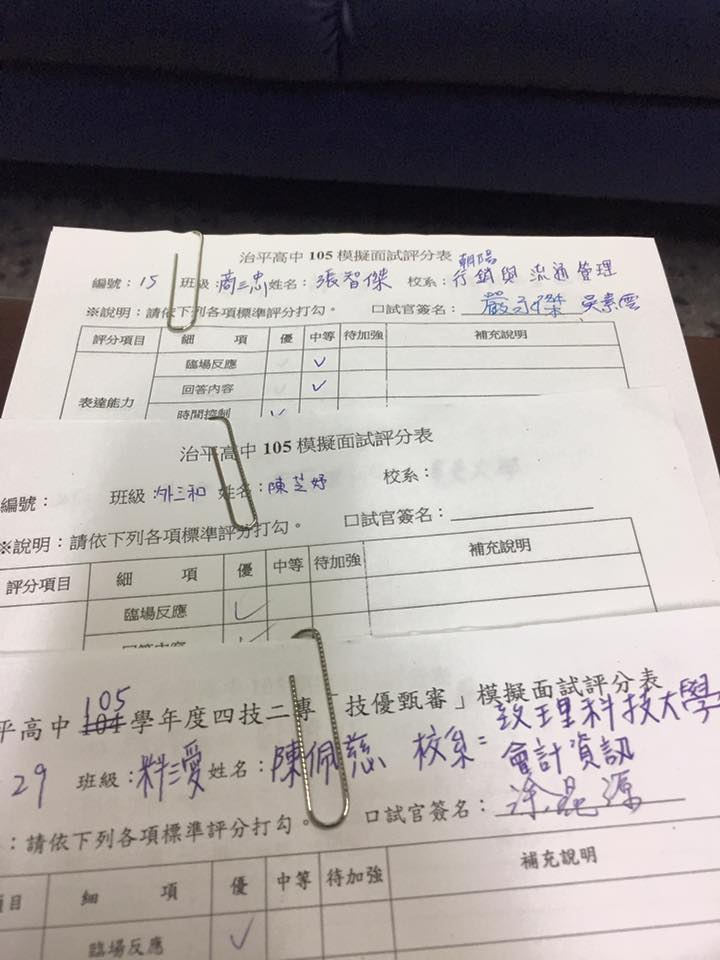 治平高中 105 模擬面試評分表
朝陽
編號：15 班級 商三忠 姓名：張智傑 校系：行銷與 流通管理
※說明：請依下列各項標準評分打勾。 口試官簽名： 吳素雲
評分項目 細 項 優 中等 待加強 補充說明
臨場反應 ✓
表達能力 回答內容 ✓
時間控制 ✓
治平高中 105 模擬面試評分表
編號： 班級：外三和 姓名：陳芝妤 校系：
※說明：請依下列各項標準評分打勾。 口試官簽名：
評分項目 細 項 優 中等 待加強 補充說明
臨場反應 ✓
回答內容 ✓
平高中 105 104 學年度四技二專「技優甄審」模擬面試評分表
29 班級： 姓名：陳佩慈 校系：致理科技大學
會計資訊
：請依下列各項標準評分打勾。 口試官簽名：
項目 細 項 優 中等 待加強 補充說明
臨場反應 ✓